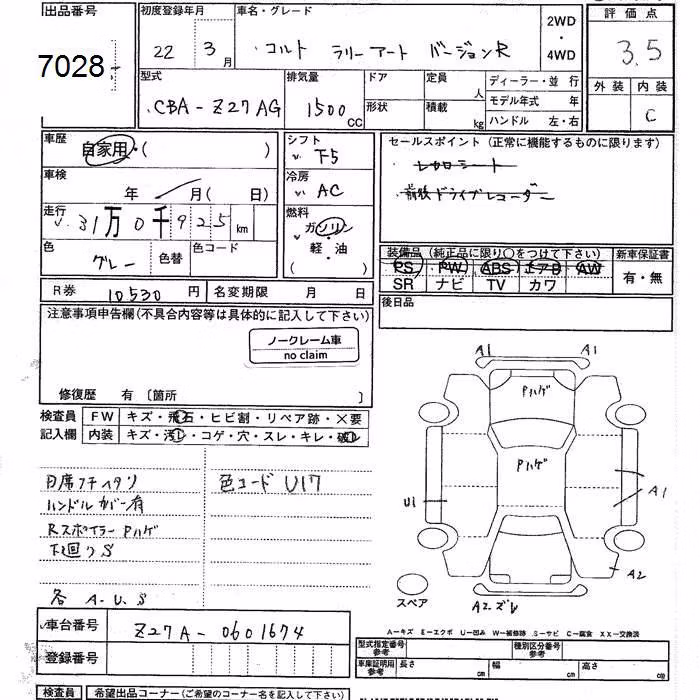 出品番号
7028
初度登録年月
22 3月
車名・グレード
コルト ラリーアート バージョンR
2WD
・
4WD
評価点
3.5
外装 内装
C
型式
CBA-Z27AG
排気量
1500 CC
ドア
形状
定員 人
積載 kg
ディーラー・並行
モデル年式 年
ハンドル 左・右
車歴
自家用・( )
車検
年 月( 日)
走行
31万0千925km
色
グレー
色替
色コード
シフト
F5
冷房
AC
燃料
ガソリン
軽・油
( )
セールスポイント (正常に機能するものに限ります)
レカロシート
前後ドライブレコーダー
装備品 (純正品に限り○をつけて下さい)
PS PW ABS エアB AW
SR ナビ TV カワ
新車保証書
有・無
R券 10530円
名変期限 月 日
後日品
注意事項申告欄(不具合内容等は具体的に記入して下さい)
ノークレーム車
no claim
修復歴 有 〔箇所 〕
検査員
記入欄
FW キズ・飛石・ヒビ割・リペア跡・×要
内装 キズ・汚レ・コゲ・穴・スレ・キレ・破レ
ハンドルカバー有
Rスポイラー Pハゲ
下廻りS
各 A.U.S
色コード U17
A1 A1
Pハゲ
Pハゲ
U1
A1
A2
A2ズレ
スペア
A-キズ E-エクボ U-凹み W-補修跡 S-サビ C-腐食 XX-交換済
車台番号
Z27A-0601674
登録番号
型式指定番号
参考
種別区分番号
参考
車庫証明用
参考
長さ cm
幅 cm
高さ cm
検査員
希望出品コーナー(ご希望のコーナー名を記入下さい)